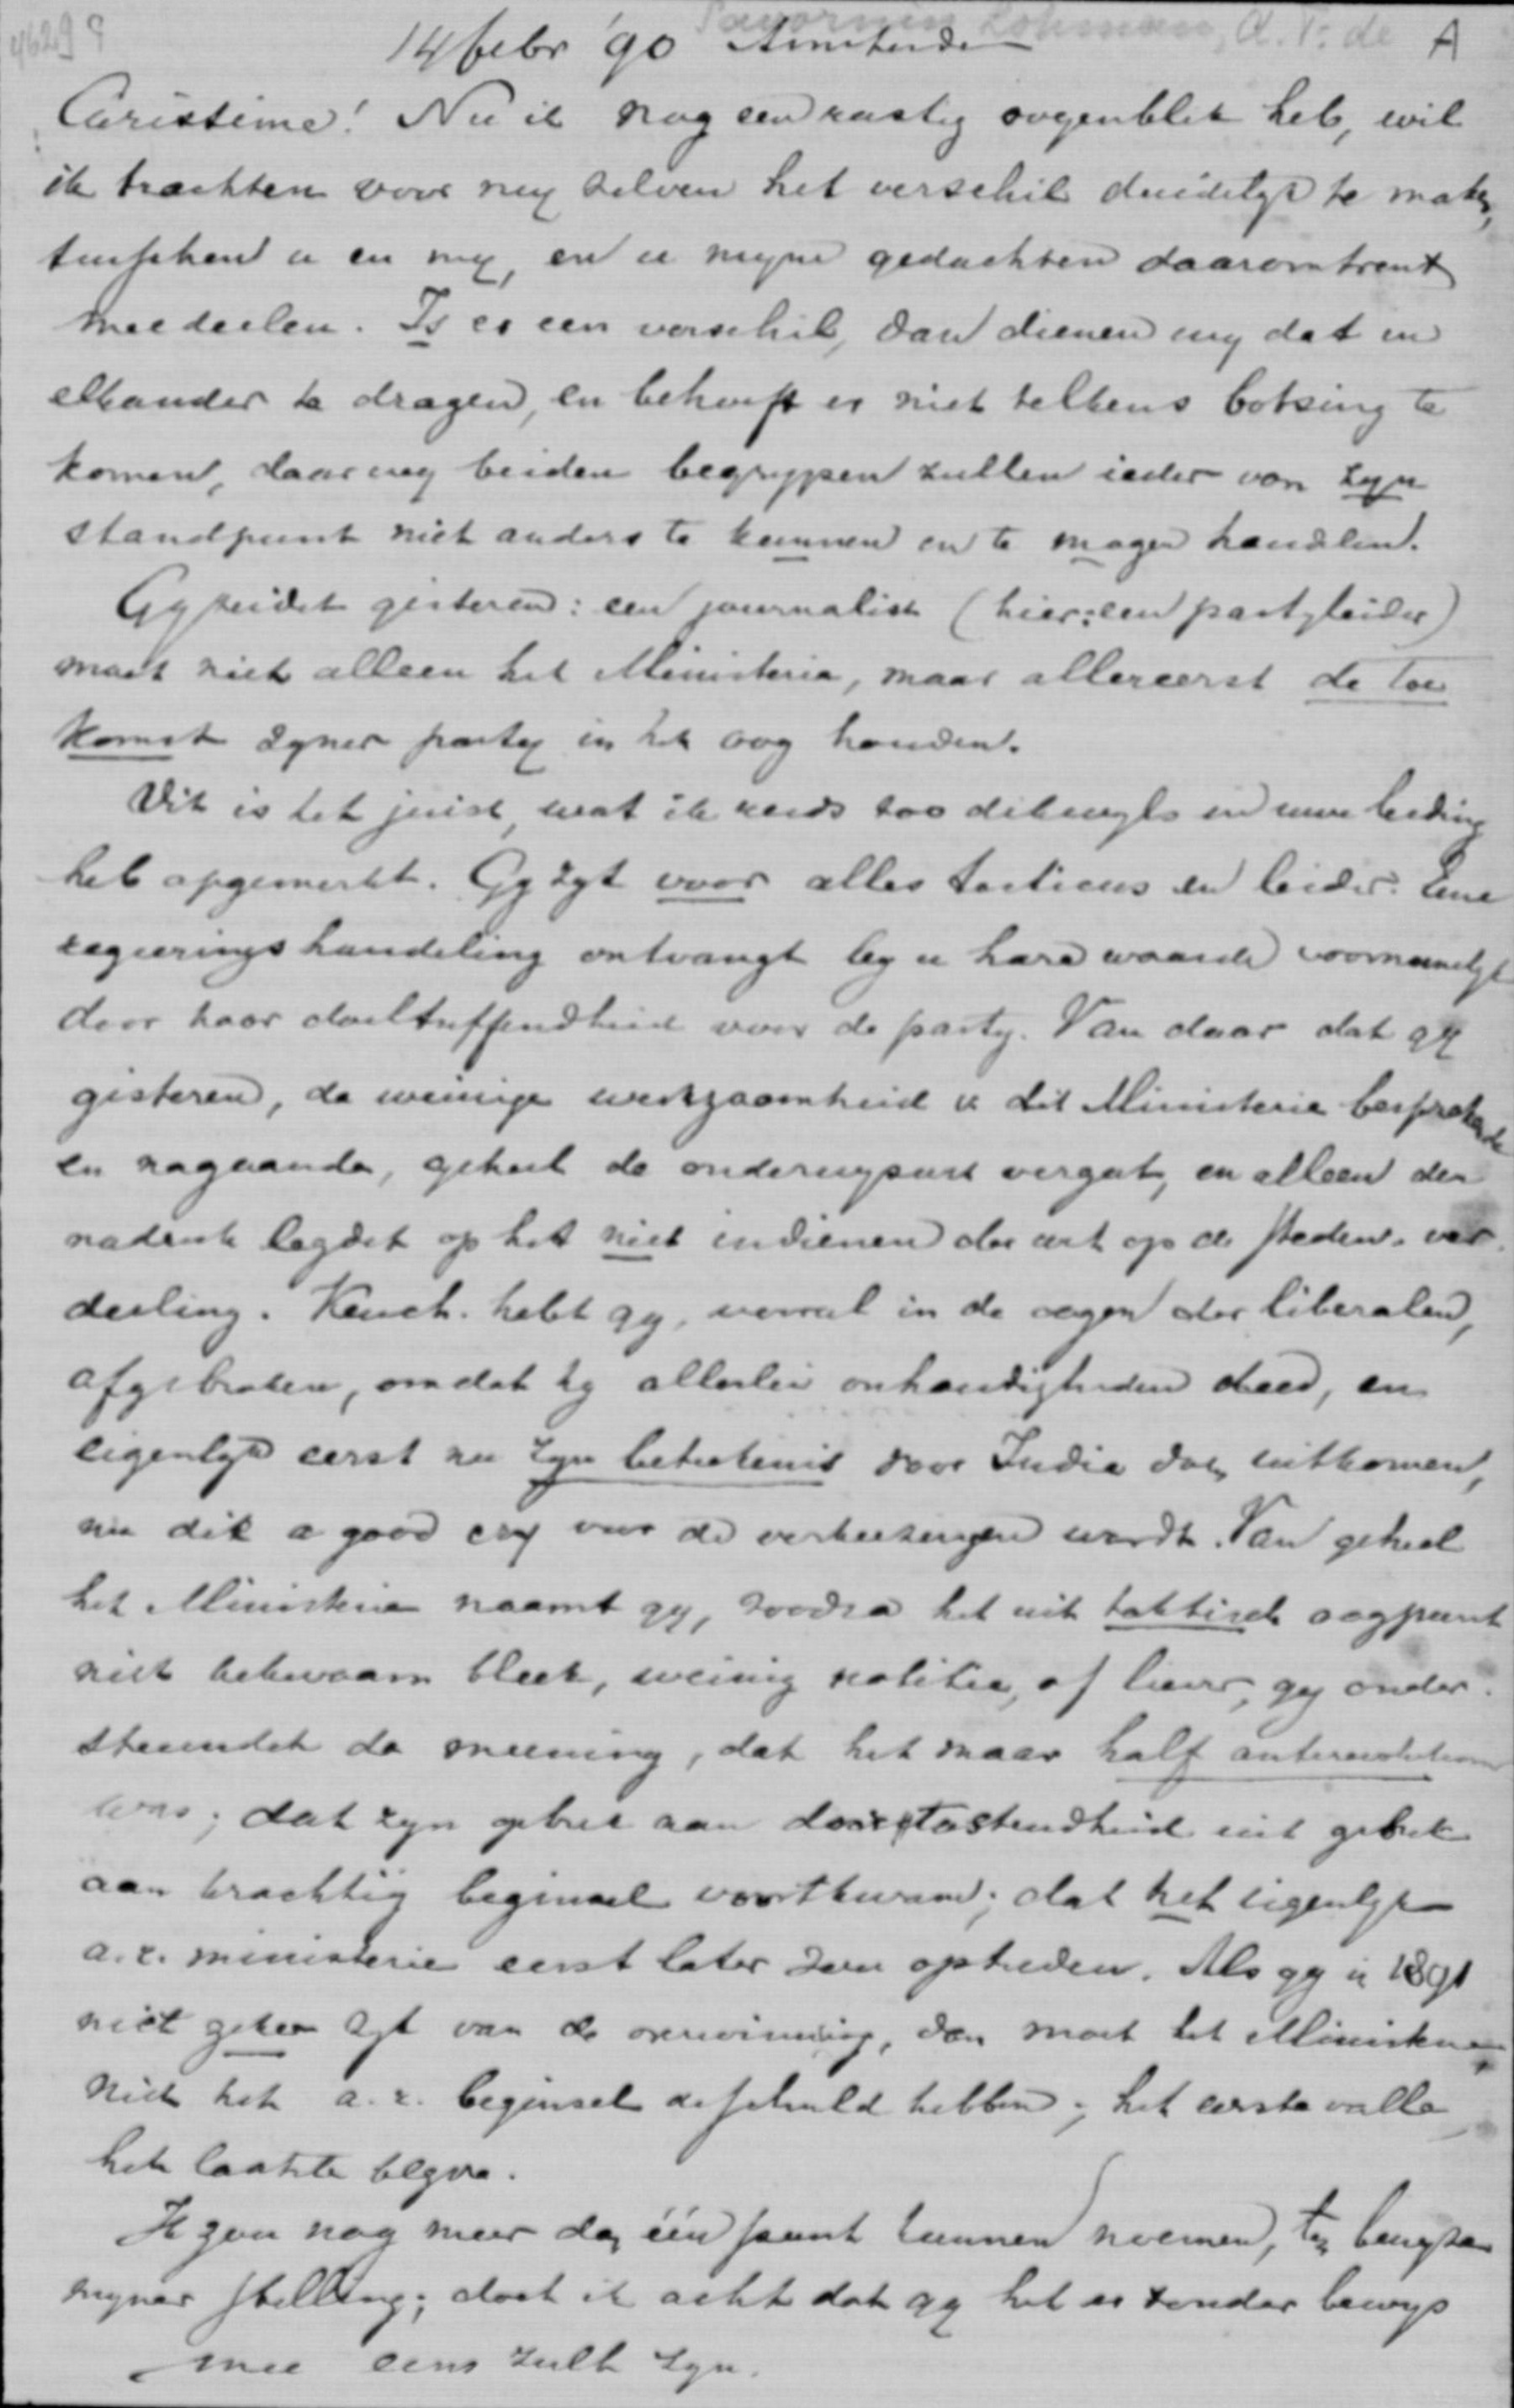 4629 9 Savornin Lohman, A. F. de A
14 febr '90 Amsterdam
Carissime! Nu ik nog een rustig oogenblik heb, wil
ik trachten voor mij zelven het verschil duidelijk te maken,
tusschen u en mij, en u mijne gedachten daaromtrent
meedeelen. Is er een verschil, dan dienen wij dat in
elkander te dragen, en behoeft er niet telkens botsing te
komen, daar wij beiden begrijpen zullen ieder van zijn
standpunt niet anders te kunnen en te mogen handelen.
Gij zeidet gisteren: een journalist (hier: een partijleider)
moet niet alleen het Ministerie, maar allereerst de toe
komst zijner partij in het oog houden.
Dit is het juist, wat ik reeds zoo dikwijls in uwe leiding
heb opgemerkt. Gij zijt voor alles tacticus en leider. Eene
regeeringshandeling ontvangt bij u hare waarde voornamelijk
door haar doeltreffendheid voor de partij. Van daar dat gij
gisteren, de weinige werkzaamheid v. dit Ministerie besprekende
en nagaande, geheel de onderwijswet vergat, en alleen den
nadruk legdet op het niet indienen der wet op de steden-ver
deeling. Keuch. hebt gij, vooral in de oogen der liberalen,
afgebroken, omdat hij allerlei onhandigheden deed, en
eigenlijk eerst nu zijn beteekenis voor Indie doen uitkomen,
nu dit a good cry voor de verkiezingen wordt. Van geheel
het Ministerie naamt gij, zoodra het uit taktisch oogpunt
niet bekwaam bleek, weinig notitie, of liever, gij onder
steundet de meening, dat het maar half antirevolutionair
was; dat zijn gebrek aan doortastendheid uit gebrek
aan krachtig beginsel voortkwam; dat het eigenlijke
a.r. ministerie eerst later zou optreden. Als gij in 1891
niet zeker zijt van de overwinning, dan moet het Ministerie
niet het a.r. beginsel de schuld hebben; het eerste valle,
het laatste blijve.
Ik zou nog meer dan één punt kunnen noemen, ten bewijze
mijner stelling; doch ik acht dat gij het er zonder bewijs
mee eens zult zijn.